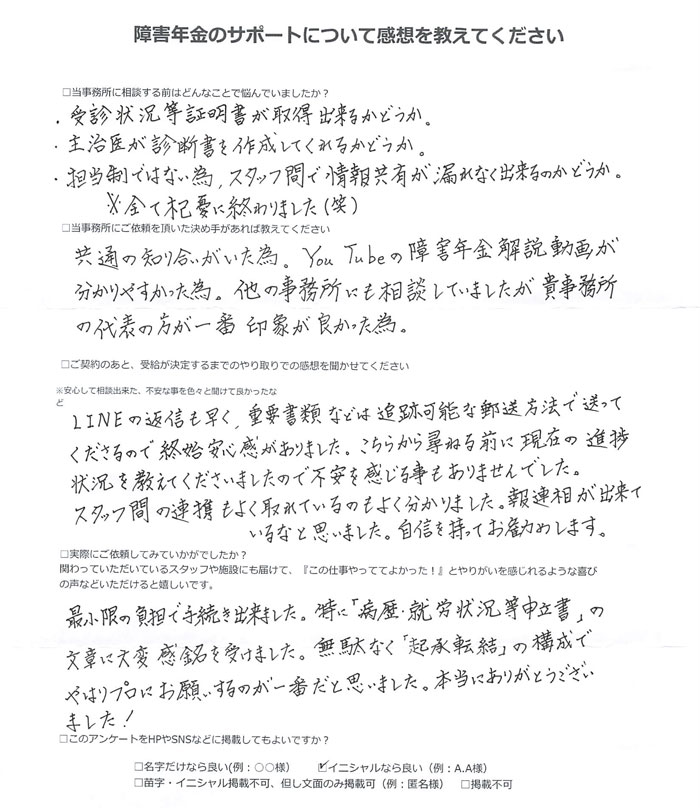 障害年金のサポートについて感想を教えてください
□当事務所に相談する前はどんなことで悩んでいましたか？
・受診状況等証明書が取得出来るかどうか。
・主治医が診断書を作成してくれるかどうか。
・担当制ではない為、スタッフ間で情報共有が漏れなく出来るのかどうか。
※全て杞憂に終わりました(笑)
□当事務所にご依頼を頂いた決め手があれば教えてください
共通の知り合いがいた為。YouTubeの障害年金解説動画が
分かりやすかった為。他の事務所にも相談していましたが貴事務所
の代表の方が一番印象が良かった為。
□ご契約のあと、受給が決定するまでのやり取りでの感想を聞かせてください
※安心して相談出来た、不安な事を色々と聞けて良かったな
ど
LINEの返信も早く、重要書類などは追跡可能な郵送方法で送って
くださるので終始安心感がありました。こちらから尋ねる前に現在の進捗
状況を教えてくださいましたので不安を感じる事もありませんでした。
スタッフ間の連携もよく取れているのもよく分かりました。報連相が出来て
いるなと思いました。自信を持ってお勧めします。
□実際にご依頼してみていかがでしたか？
関わっていただいているスタッフや施設にも届けて、『この仕事やっててよかった！』とやりがいを感じれるような喜び
の声などいただけると嬉しいです。
最小限の負担で手続き出来ました。特に「病歴・就労状況等申立書」の
文章に大変感銘を受けました。無駄なく「起承転結」の構成で
やはりプロにお願いするのが一番だと思いました。本当にありがとうござい
ました！
□このアンケートをHPやSNSなどに掲載してもよいですか？
□名字だけなら良い(例：○○様） ☑イニシャルなら良い（例：A.A様）
□苗字・イニシャル掲載不可、但し文面のみ掲載可（例：匿名様） □掲載不可